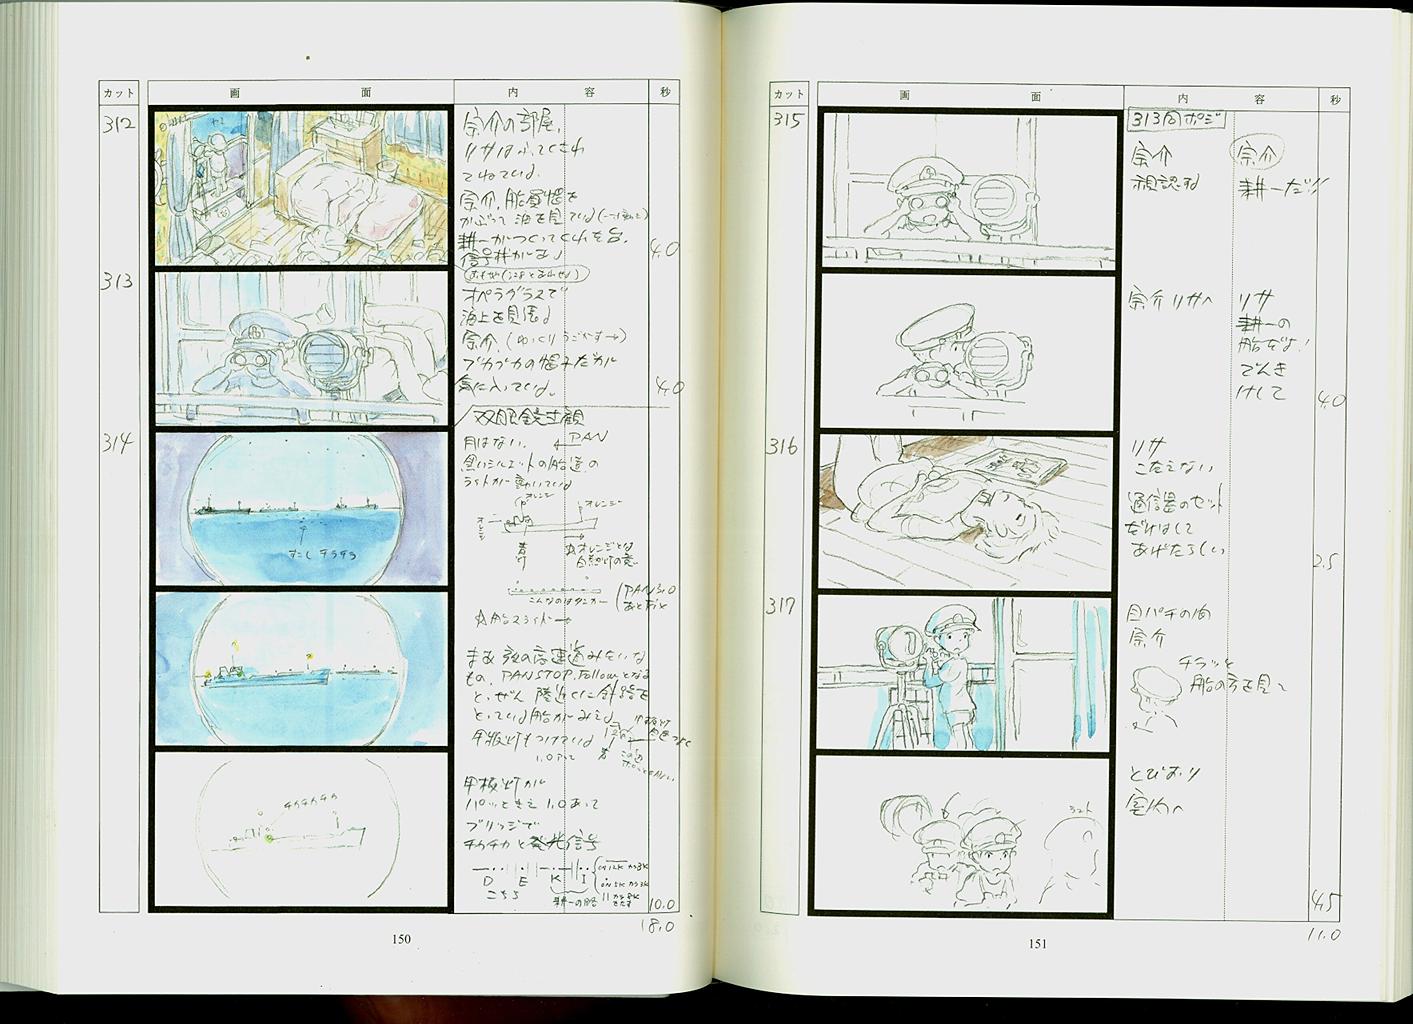 カット
画 面
内 容
秒
312
宗介の部屋。
リサはふてくされ
てねている。
宗介、船長帽を
かぶって 海を見ている
耕一がつくってくれた台。
信号灯がある
4.0
313
オペラグラスで
海上を見る
宗介、(ゆっくり うごかす→)
ブカブカの帽子だが
気に入っている。
4.0
314
双眼鏡主観
月はない。
PAN
黒いシルエットの船達の
ライトが動いている
オレンジ
オレンジ
オレンジ
すこし チラチラ
こんなのはタンカー
まあ 夜の高速道みたいな
もの、PAN STOP. Followとなる
と、ぜん 陸近くに針路を
とっている船がみえる
甲板灯もつけている
甲板灯が
パッときえ 1.0あって
ブリッジで
チカチカと発光信号
チカチカチカ
D E K I
こちら
耕一の船
10.0
18.0
150
カット
画 面
内 容
秒
315
313同ポジ
宗介
視認する
宗介
耕一だ!!
宗介 リサへ
リサ
耕一の
船だよ!
でんき
けして
4.0
316
リサ
こたえない
通信器のセット
だけはして
あげたらしい
2.5
317
目パチの内
宗介
チラッと
船の方を見て
とびおり
室内へ
ラスト
4.5
11.0
151